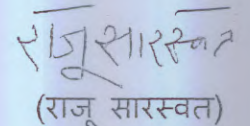 राजू सारस्वत
(राजू सारस्वत)